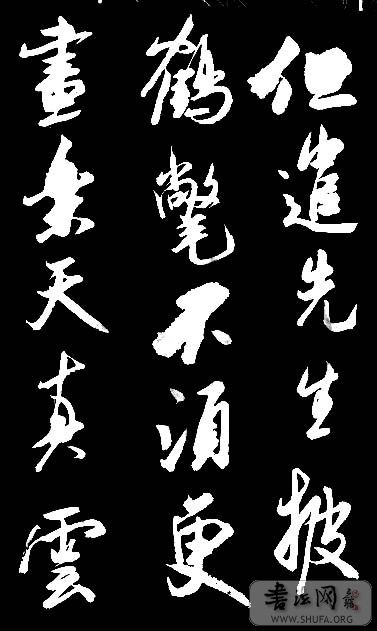 但遣先生披
鶴氅不須更
畫樂天真雲
書法网
WWW.SHUFA.ORG